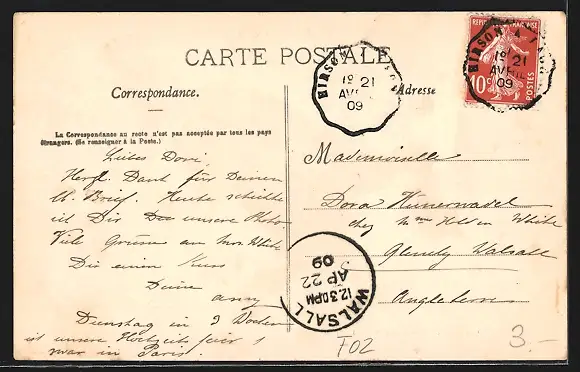 CARTE POSTALE
Correspondance.
Adresse
La Correspondance au recto n'est pas acceptée par tous les pays
étrangers. (Se renseigner à la Poste.)
HIRSON A
1º 21
AVRIL
09
REPUBLIQUE FRANÇAISE
HIRSON A
1º 21
AVRIL
09
10
POSTES
Liebes Dori,
Herzl. Dank für Deinen
lb. Brief. Heute schickte
ich Dir unsere Photo.
Viele Grüsse an Mrs White
Dir einen Kuss
Deine
Anny
Dienstag in 3 Wochen
ist unsere Hochzeitsfeier
war in Paris.
Mademoiselle
Dora Hunerwadel
chez Mme White
Walsall
Angleterre
WALSALL
12.30PM
AP 22
09
F02
3.-